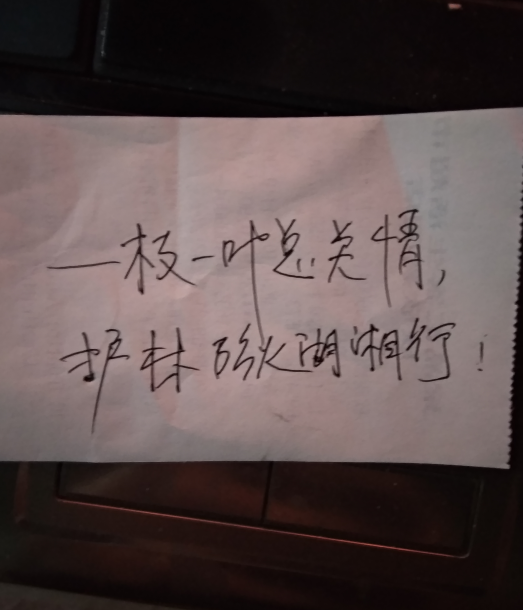 一枝一叶总关情,
护林防火湖湘行!